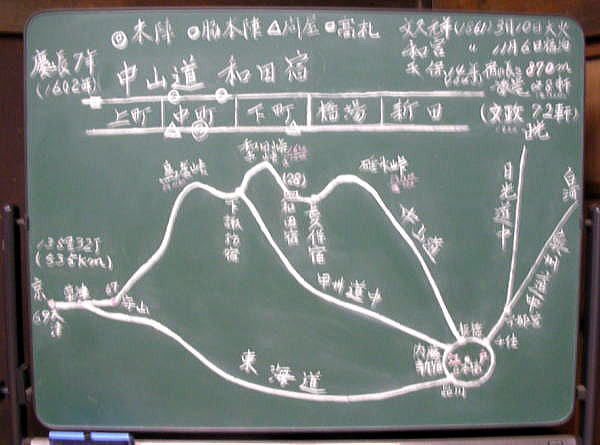 ◎本陣 ○脇本陣 △問屋 高札
文久元年(1861)3月10日大火
和宮 〃 11月6日宿泊
慶長7年
(1602年)
中山道 和田宿
天保14年 宿の長さ 870m
上町 中町 下町 橋場 新田
(文政 72軒)
鳥居峠
和田峠
碓氷峠
(28)
下諏訪宿
和田宿
長久保宿
中山道
日光道中
白河
(535km)
甲州道中
京
大津
草津
67
守山
69
宇都宮
板橋
千住
内藤新宿
日本橋
品川
東海道